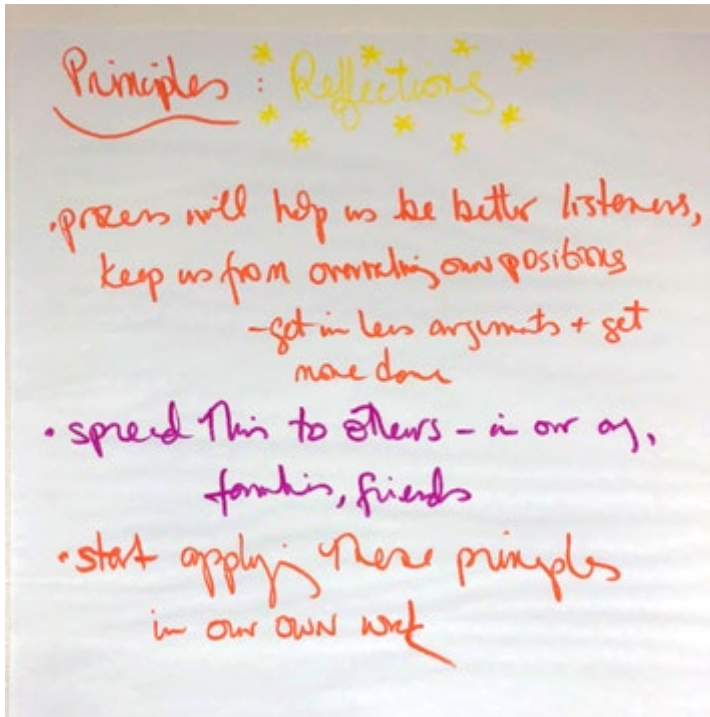 Principles : Reflections
• process will help us be better listeners,
keep us from overrating our positions
- get in less arguments + get
more done
• spread this to others - in our org,
families, friends
• start applying these principles
in our own work